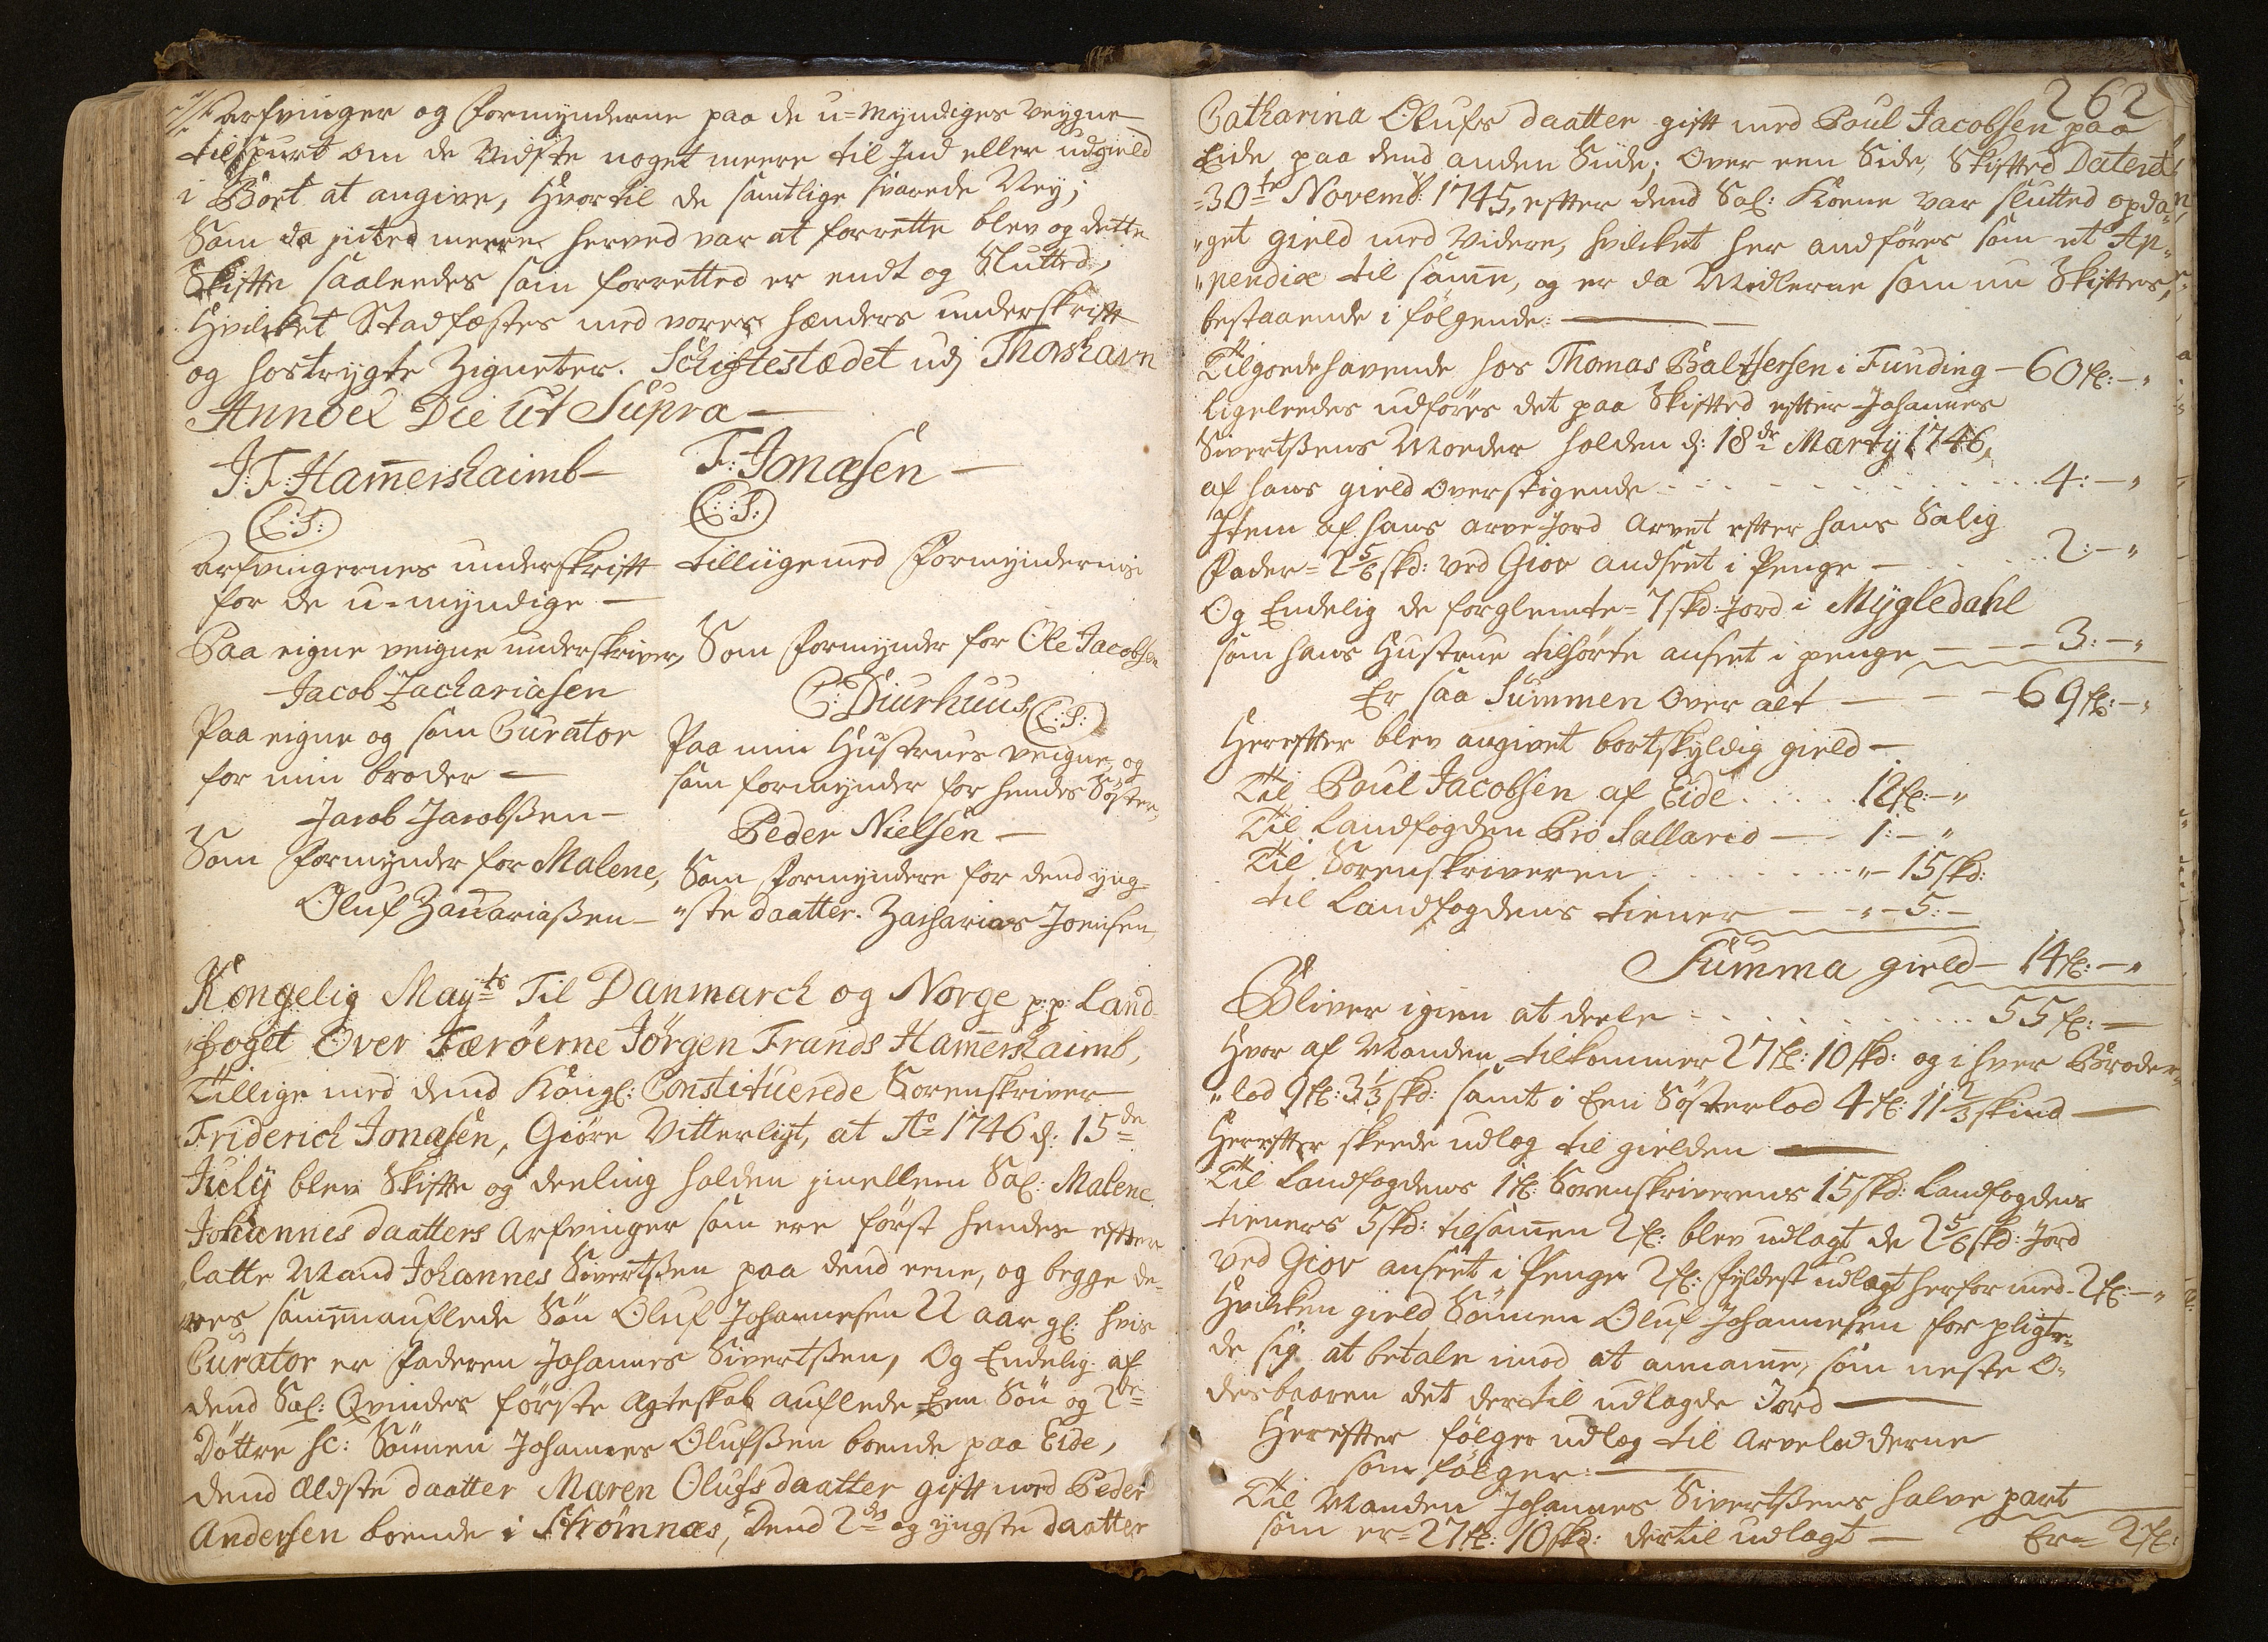 arfvinger og Formynderne paa de u=Myndiges veygne
tilspurt om de Vidste noget meere til Ind eller udgield
i Boet at angive, Hvortil de samtlige svarede Ney;
Som da intet meere herved var at forrette blev og dette
Skifte saaleedes som forretted er endt og Slutted,
Hvilcket Stadfæstes med vores hænders underskrift
og hostrygte Zigneter. Schiftestædet udj Thorshavn
Annoel Die Ut Supra
J: F: Ham̄ershaimb
F: Jonæsen
(L: S:)
(L: S:)
Arfvingernes underskrift tilliigemed Formynderne
for de u=myndige
Paa eigne veigne underskriver,
Jacob Zachariasen
Paa eigne og som Curator
for min broder
Jacob Jacobßen
Som Formynder for Malene,
Oluf Zacariaßen
Som Formynder for Ole Jacobsen
C: Diurhuus (L: S:)
Paa min Hustrues veigne, og
som formynder for hendes Søster,
Peder Nielsen
Som Formyndere for dend yng=
"ste daatter. Zacharias Joensen
Kongelig Mayts Til Danmarck og Norge p: p: Land
"foget Over Færøerne Jörgen Frands Ham̄ershaimb,
Tillige med dend Kongl: Constituerede Sorenskriver
Friderich Jonæsen, Giöre Vitterligt, at Ao 1746 d: 15de
July blev Skifte og deeling holden jmellem Sal: Malene
Johannes daatters Arfvinger som ere först hendes efter
latte Mand Johannes Sivertßen paa dend eene, og begge de=
res sam̄enauflede Sön Oluf Johannesen 22 aar gl: hvis
Curator er faderen Johannes Sivertßen, Og Endelig af
dend Sal: Qvindes förste Ægteskab auflede Een Sön og 2de
Döttre sc: Sönnen Johannes Olufßen boende paa Eide,
dend Ældste daatter Maren Olufs daatter gift med Peder
Andersen boende i Strömnæs, Dend 2den og yngste daatter
262
Catharina Olufs daatter gift med Poul Jacobsen paa
Eide paa dend anden Siide; Over een Side, Skifted Dateret
=30te Novemb: 1745, efter dend Sal: Koene var slutted opda=
"get gield med Videre, hvilcket her andföres som et Ap=
"pendix til sam̄e, og er da Midlerne som nu Skiftes,
bestaaende i fölgende:
Tilgoedehavende hos Thomas Balthersen i Funding – 60 fl: – "
Ligeleedes udföres det paa Skifted efter Johannes
Sivertßens Moeder holden d: 18de Marty 1746,
af hans gield overstigende . . . . 4: – "
Item af hans arve Jord Arvet efter hans Salig
Fader = 2 5/6 skd: ved Giov andseet i Penge – . . . 2: – "
Og Endelig de forglemte = 7 skd: Jord i Mygledahl
som hans Hustrue tilhörte anseet i penge – – 3: – "
Er saa Summen over alt – – – 69 fl: – "
Herefter blev angivet bortskyldig gield –
Til Poul Jacobsen af Eide . . . . 12 fl: – "
Til Landfogden Pro Sallario – – 1: – "
Til Sorenskriveren . . . . " – 15 skd:
til Landfogdens tiener – – " – 5: –
Summa gield – 14 fl: – "
Bliver igien at deele . . . . 55 fl: –
Hvor af Manden tilkommer 27 fl: 10 skd: og i hver Broder=
"lod 9 fl: 3 1/3 skd: samt i Een Sösterlod 4 fl: 11 2/3 skind
Herefter skeede udlæg til gielden
Til Landfogdens 1 fl: Sorenskriverens 15 skd: Landfogdens
tieners 5 skd: tilsam̄en 2 fl: blev udlagt de 2 5/6 skd: Jord
ved Giov anseet i Penge 2 fl: Fyldest udlagt herfor med – 2 fl: – "
Hvilcken gield Sönnen Oluf Johannesen forpligte=
de sig at betale imod at annam̄e, som neste O=
delsbaaren det dertil udlagde Jord
Herefter fölger udlæg til Arvelodderne
som fölger:
Til Manden Johannes Sivertßens halve part
som er = 27 fl: 10 skd: dertil udlagt – Er = 2 fl: